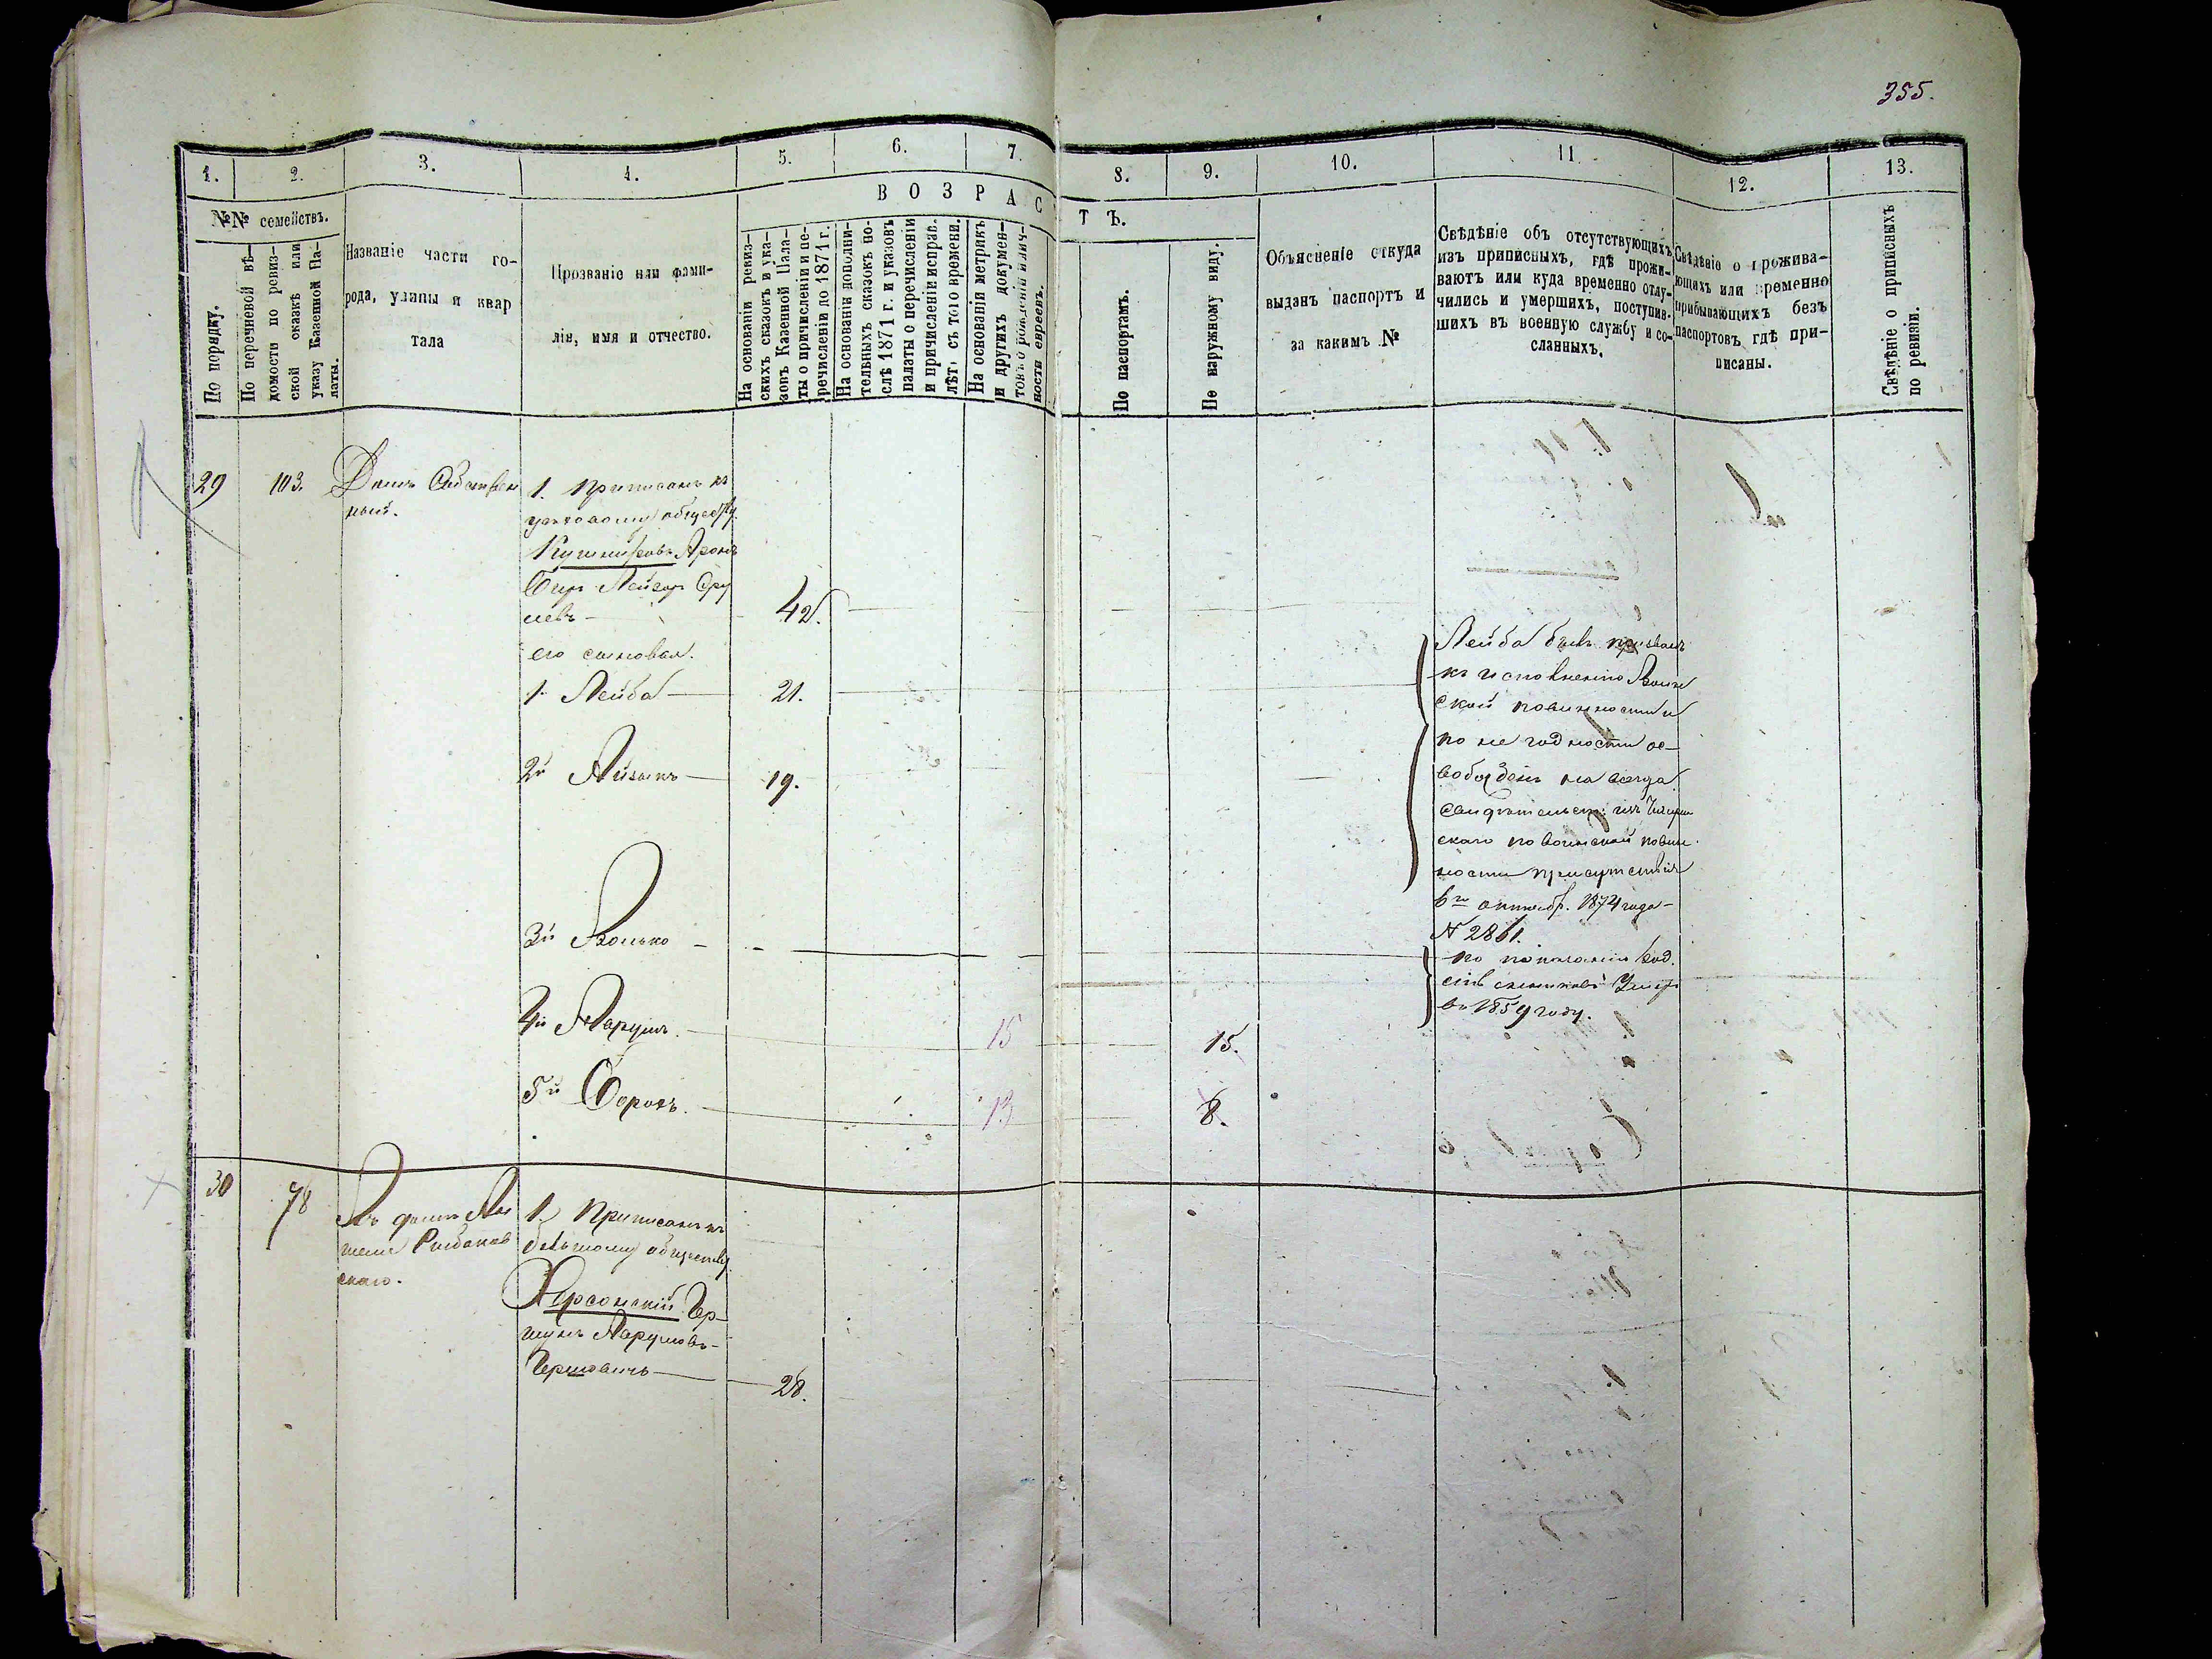 355.
1.
2.
3.
4.
5.
6.
7.
8.
9.
10.
11.
12.
13.
№№ семействъ.
ВОЗРАС
ТЪ.
По порядку.
По перечневой вѣ-
домости по ревиз-
ской сказкѣ или
указу Казенной Па-
латы.
Названіе части го-
рода, улицы и квар
тала
Прозваніе или фами-
лія, имя и отчество.
На основаніи ревиз-
скихъ сказокъ и ука-
зовъ Казенной Пала-
ты о причисленіи и пе-
речисленіи до 1871 г.
На основаніи дополни-
тельныхъ сказокъ по-
слѣ 1871 г. и указовъ
палаты о перечисленіи
и причисленіи исправ.
лѣтъ съ того времени.
На основаніи метрикъ
и другихъ докумен-
товъ о рожденіи и лич-
ности евреевъ.
По паспортамъ.
По наружному виду.
Объясненіе откуда
выданъ паспортъ и
за какимъ №
Свѣдѣніе объ отсутствующихъ
изъ приписныхъ, гдѣ прожи-
ваютъ или куда временно отлу-
чились и умершихъ, поступив-
шихъ въ военную службу и со-
сланныхъ.
Свѣдѣніе о прожива-
ющихъ или временно
прибывающихъ безъ
паспортовъ гдѣ при-
писаны.
Свѣдѣніе о приписныхъ
по ревизіи.
29
103.
Домъ Собствен
ный.
1. Приписанъ къ
обществу.
Кушнировъ Аронъ
Беръ Лейзоръ Сру
левъ
42.
его сыновья.
1. Лейба
21.
2й Айзикъ
19.
3й Волько
4й Нарумъ.
15
15.
5й Беролъ.
13
8.
Лейба былъ призванъ
къ исполненію Воин
ской повинности и
по не годности ос-
вобожденъ на всегда
свидѣтельст: изъ Чигирин
скаго по воинской повин.
ности присутствія
6го октябр. 1874 года
N 2861.
по показанію
Умеръ
въ 1859 году.
30
78
Въ домѣ
Рыбаков
скаго.
1. Приписанъ къ
обществу
Херсонскій Гер-
шунъ Нарумовъ-
Гершовичъ
28.